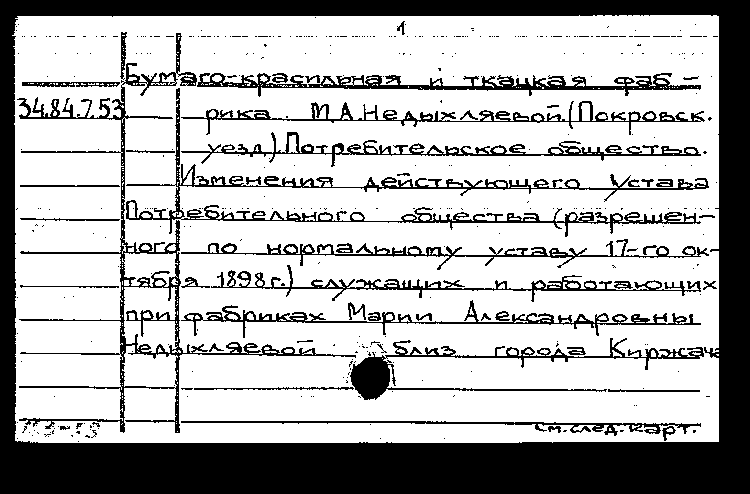 1
Бумаго-красильная и ткацкая фаб-
34.84.7.53 рика М.А.Недыхляевой.(Покровск.
уезд).Потребительское общество.
Изменения действующего Устава
Потребительного общества (разрешен-
ного по нормальному уставу 17-го ок-
тября 1898г.) служащих и работающих
при фабриках Марии Александровны
Недыхляевой близ города Киржача
см.след.карт.